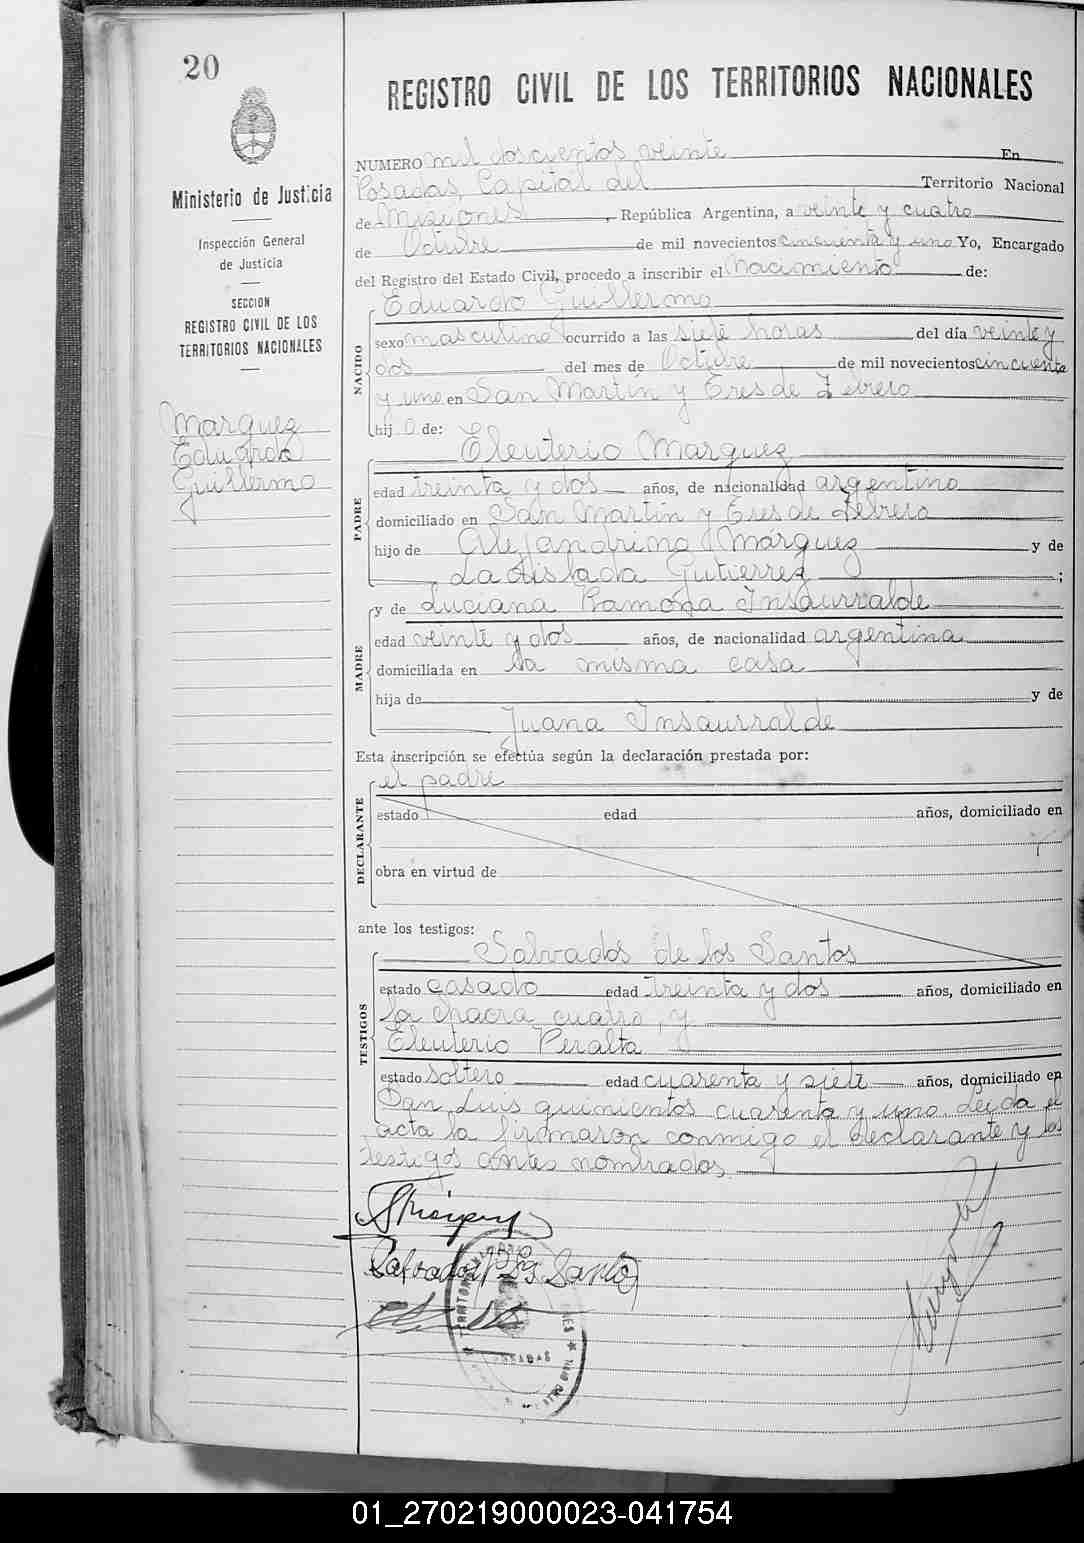 20
REGISTRO CIVIL DE LOS TERRITORIOS NACIONALES
Ministerio de Justicia
Inspección General
de Justicia
SECCION
REGISTRO CIVIL DE LOS
TERRITORIOS NACIONALES
Marquez
Eduardo
Guillermo
NUMERO mil doscientos veinte En
Posadas, Capital del Territorio Nacional
de Misiones, República Argentina, a veinte y cuatro
de Octubre de mil novecientos cincuenta y uno Yo, Encargado
del Registro del Estado Civil, procedo a inscribir el Nacimiento de:
NACIDO
Eduardo Guillermo
sexo masculino ocurrido a las siete horas del día veinte y
dos del mes de Octubre de mil novecientos cincuenta
y uno en San Martin y Tres de Febrero
hijo de:
PADRE
Eleuterio Marquez
edad treinta y dos años, de nacionalidad argentino
domiciliado en San Martin y Tres de Febrero
hijo de Alejandrino Marquez y de
Ladislada Gutierrez ;
MADRE
y de Luciana Ramona Insaurralde
edad veinte y dos años, de nacionalidad argentina
domiciliada en la misma casa
hija de y de
Juana Insaurralde
Esta inscripción se efectúa según la declaración prestada por:
DECLARANTE
el padre
estado edad años, domiciliado en
obra en virtud de
ante los testigos:
TESTIGOS
Salvador de los Santos
estado casado edad treinta y dos años, domiciliado en
la chacra cuatro, y
Eleuterio Peralta
estado soltero edad cuarenta y siete años, domiciliado en
San Luis quinientos cuarenta y uno. Leida el
acta la firmaron conmigo el declarante y los
testigos antes nombrados.
Salvador D Ls Santos
POSADAS
01_270219000023-041754